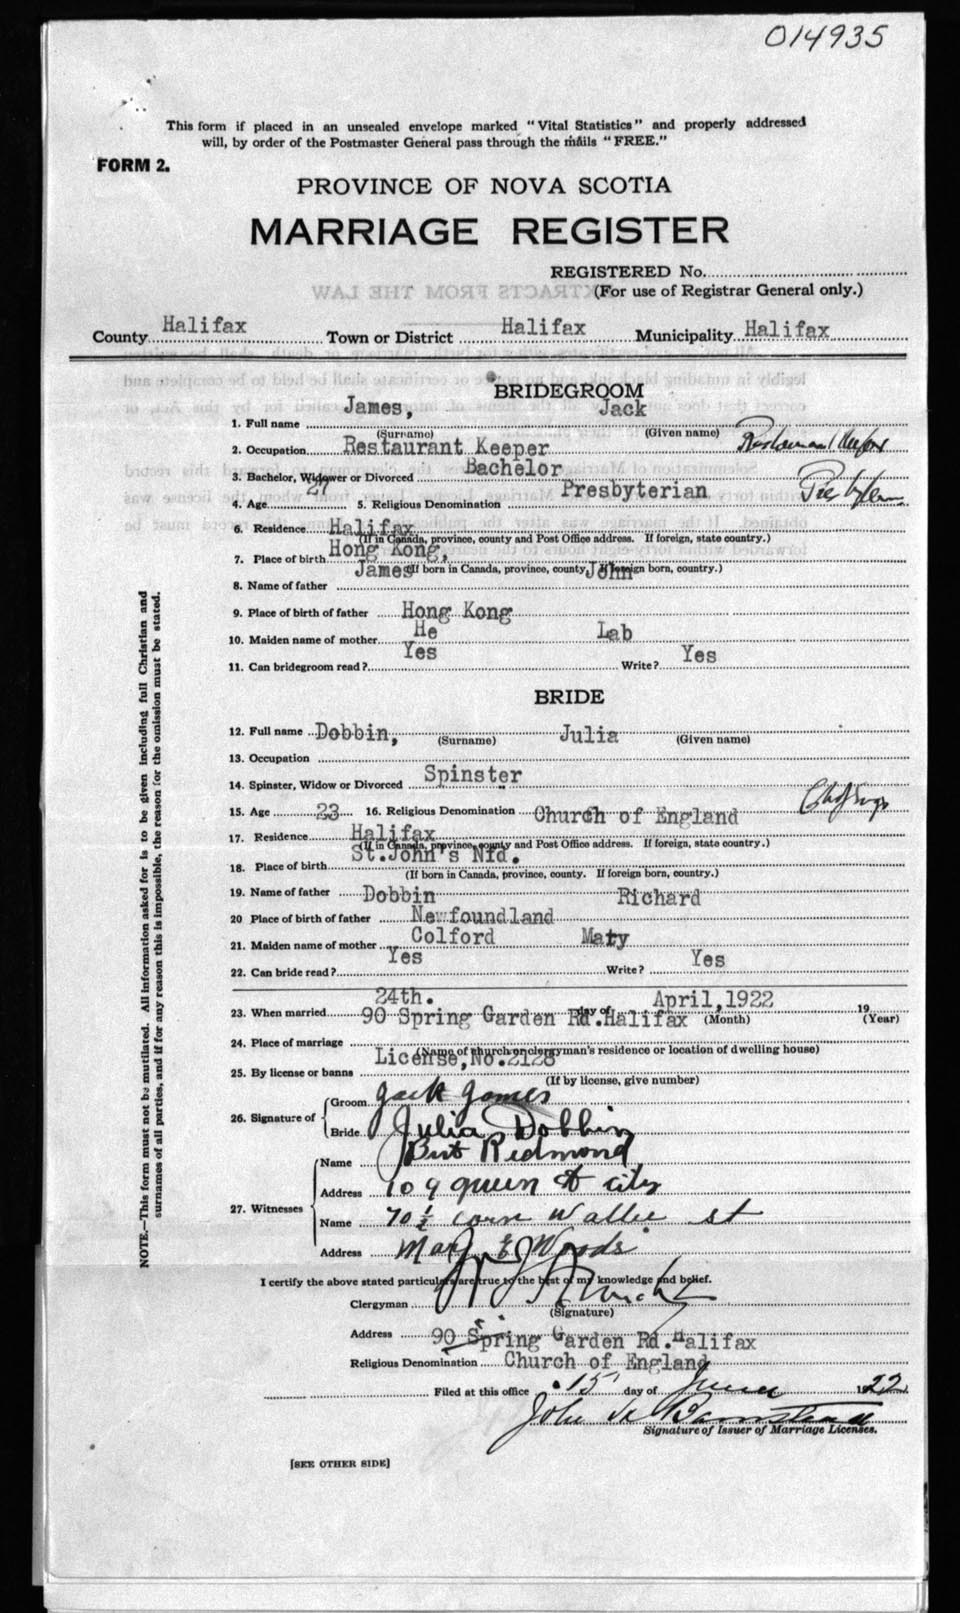 014935
This form if placed in an unsealed envelope marked "Vital Statistics" and properly addressed
will, by order of the Postmaster General pass through the mails "FREE."
FORM 2.
PROVINCE OF NOVA SCOTIA
MARRIAGE REGISTER
REGISTERED No.
(For use of Registrar General only.)
EXTRACTS FROM THE LAW
County Halifax Town or District Halifax Municipality Halifax
BRIDEGROOM
1. Full name James, Jack
(Surname) (Given name)
2. Occupation Restaurant Keeper Restaurant Keeper
3. Bachelor, Widower or Divorced Bachelor
4. Age 27 5. Religious Denomination Presbyterian Presbyterian
6. Residence Halifax
(If in Canada, province, county and Post Office address. If foreign, state country.)
7. Place of birth Hong Kong,
(If born in Canada, province, county. If foreign born, country.)
8. Name of father James John
9. Place of birth of father Hong Kong
10. Maiden name of mother He Lab
11. Can bridegroom read? Yes Write? Yes
BRIDE
12. Full name Dobbin, Julia
(Surname) (Given name)
13. Occupation
14. Spinster, Widow or Divorced Spinster
15. Age 23 16. Religious Denomination Church of England
17. Residence Halifax
(If in Canada, province, county and Post Office address. If foreign, state country.)
18. Place of birth St.John's Nfd.
(If born in Canada, province, county. If foreign born, country.)
19. Name of father Dobbin Richard
20 Place of birth of father Newfoundland
21. Maiden name of mother Colford Mary
22. Can bride read? Yes Write? Yes
23. When married 24th. day of April, 1922 19
(Month) (Year)
24. Place of marriage 90 Spring Garden Rd.Halifax
(Name of church or clergyman's residence or location of dwelling house)
25. By license or banns License,No.2128
(If by license, give number)
26. Signature of
Groom Jack James
Bride Julia Dobbin
27. Witnesses
Name Burt Redmond
Address 109 queen st city
Name 70½ corn Wallis st
Address Mary E Woods
I certify the above stated particulars are true to the best of my knowledge and belief.
Clergyman
(Signature)
Address 90 Spring Garden Rd.Halifax
Religious Denomination Church of England
Filed at this office 15 day of June 1922
Signature of Issuer of Marriage Licenses.
[SEE OTHER SIDE]
NOTE.—This form must not be mutilated. All information asked for is to be given including full Christian and
surnames of all parties, and if for any reason this is impossible, the reason for the omission must be stated.